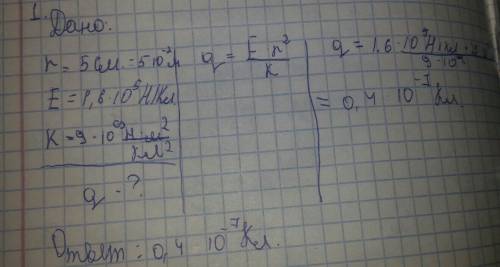 1.
Дано:
r = 5 см = 5·10⁻² м
E = 1,6·10⁵ Н/Кл
K = 9·10⁹ Н·м²/Кл²
q - ?
q = E r²/K
q = 1,6·10⁵ Н/Кл
= 0,4 10⁻⁷ Кл.
Ответ: 0,4 · 10⁻⁷ Кл.